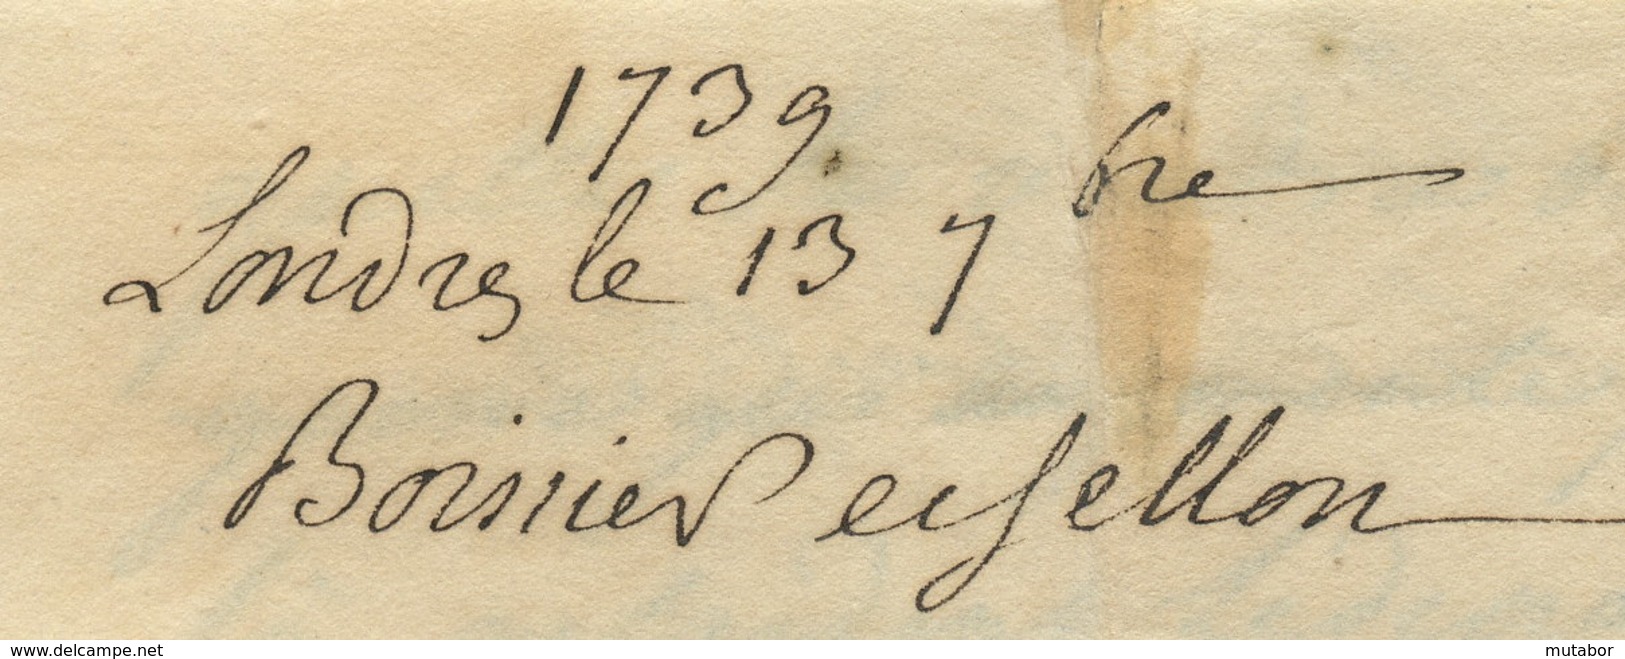 1739
Londres le 13 7bre
Boissier et Sellon
www.delcampe.net
mutabor